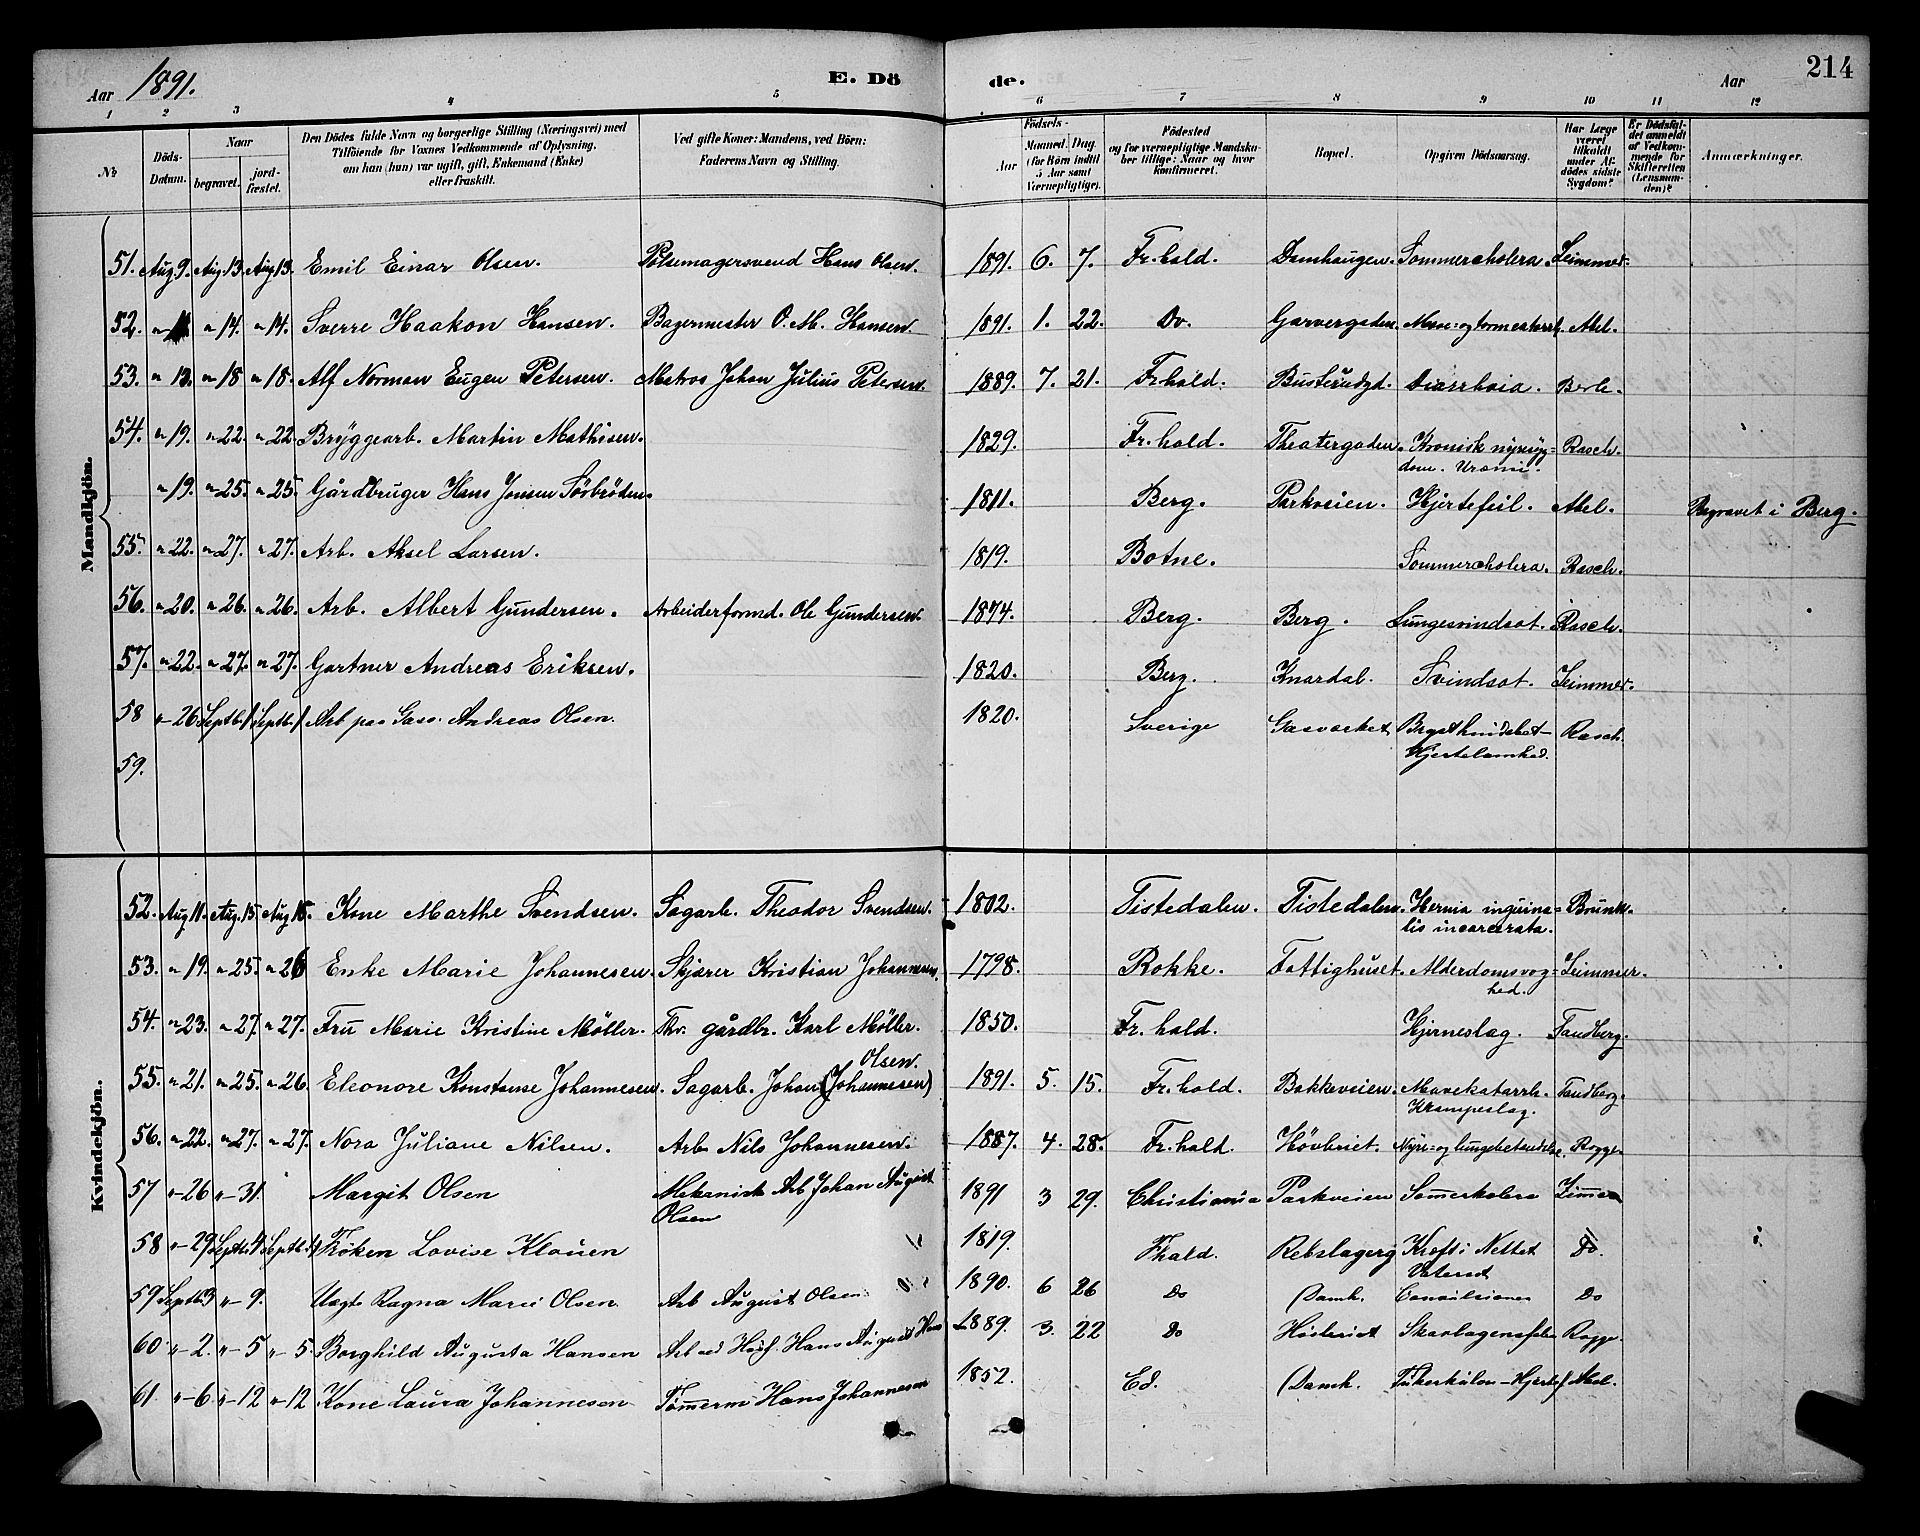 Aar 1891. E. Dö de. Aar 214
1 2 3 4 5 6 7 8 9 10 11 12
№ Döds-Datum. Naar begravet. jordfæstet. Den Dödes fulde Navn og borgerlige Stilling (Næringsvei) med Tilföiende for Voxnes Vedkommende af Oplysning, om han (hun) var ugift, gift, Enkemand (Enke) eller fraskilt. Ved gifte Koner: Mandens, ved Börn: Faderens Navn og Stilling. Födsels- Aar Maaned. Dag (for Börn indtil 5 Aar samt Værnepligtige). Födested og for værnepligtige Mandskaber tillige: Naar og hvor konfirmeret. Bopæl. Opgiven Dödsaarsag. Har Læge været tilkaldt under Afdödes sidste Sygdom? Er Dödsfaldet anmeldt af Vedkommende for Skifteretten (Lensmanden)? Anmærkninger.
Mandkjön.
51. Aug 9. Aug 13. Aug 13. Emil Einar Olsen. Pölsemagersvend Hans Olsen. 1891. 6. 7. Fr.hald. Damhaugen. Sommercholera.
52. " 14. " 14. Sverre Haakon Hansen. Bagermester O. M. Hansen. 1891. 1. 22. Do. Garvergaden. Abel.
53. " 13. " 18 " 18. Alf Norman Eugen Petersen. Matros Johan Julius Petersen. 1889. 7. 21. Fr.hald. Busterudgd. Diarrhoia.
54. " 19. " 22. " 22. Bryggearb. Martin Mathisen. 1829. Fr.hald. Theatergaden. Kronisk nyresygdom. Uræmi. Rasch.
" 19. " 25. " 25. Gårdbruger Hans Jensen Sörbröden. 1811. Berg. Parkveien. Hjertefeil. Abel. Begravet i Berg.
55. " 22. " 27. " 27. Arb. Aksel Larsen. 1819. Botne. Sommercholera. Rasch.
56. " 20. " 26. " 26. Arb. Albert Gundersen. Arbeiderformd. Ole Gundersen. 1874. Berg. Berg. Lungesvindsot. Rasch.
57. " 22. " 27. " 27. Gartner Andreas Eriksen. 1820. Berg. Knardal. Svindsot.
58 " 26 Septb. 1 Septb. 1 Arb paa Gass. Andreas Olsen. 1820. Sverige Gasværket Hjertelamhed. Rasch.
59.
Kvindekjön.
52. Aug 11. Aug. 15. Aug 15. Kone Marthe Svendsen. Sagarb. Theodor Svendsen. 1802. Tistedalen. Tistedalen. Hernia inguinalis incarcerata.
53. " 19. " 25. " 26 Enke Marie Johannesen. Skjærer Kristian Johannesen. 1798. Rokke. Fattighuset. Alderdomssvaghed.
54. " 23. " 27. " 27. Fru Marie Kristine Möller. Fhv. gårdbr. Karl Möller. 1850. Fr.hald. Hjerneslag. Tandberg.
55. " 21. " 25. " 26. Eleonore Konstanse Johannesen. Sagarb. Johan (Johannesen) Olsen. 1891. 5. 15. Fr.hald. Bakkeveien. Mavekatarrh. Krampeslag. Tandberg.
56. " 22. " 27. " 27. Nora Juliane Nilsen. Arb. Nils Johannesen. 1887. 4. 28. Fr.hald. Hövleriet. Nyre- og lungebetændelse. Rogge.
57 " 26 " 31. Margit Olsen Mekanisk Arb Johan August Olsen 1891 3 29. Christiania Parkveien Somerkolera
58 " 29 Septb. 4 Septb. 4 Fröken Lovise Klouen 1819. Fhald. Rebslagerg Kræft i Do.
59 Septb. 3 " 9. Ragna Marie Olsen Arb August Olsen 1890. 6 26 Do Damh. Convulsioner Do
60 " 2. " 5 " 5. Borghild Augusta Hansen Arb ved Hövl. Hans August Hans 1889. 3. 22 Do Hövleriet Rogge.
61. " 6. " 12 " 12 Kone Laura Johannesen Tömerm Hans Johannesen 1852. Ed. Damh. Abel.